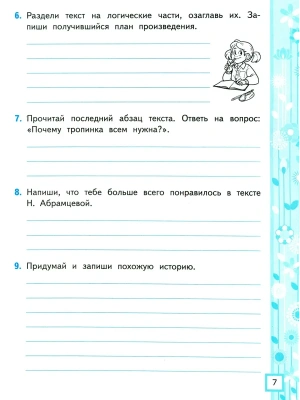 6. Раздели текст на логические части, озаглавь их. За-
пиши получившийся план произведения.
7. Прочитай последний абзац текста. Ответь на вопрос:
«Почему тропинка всем нужна?».
8. Напиши, что тебе больше всего понравилось в тексте
Н. Абрамцевой.
9. Придумай и запиши похожую историю.
7